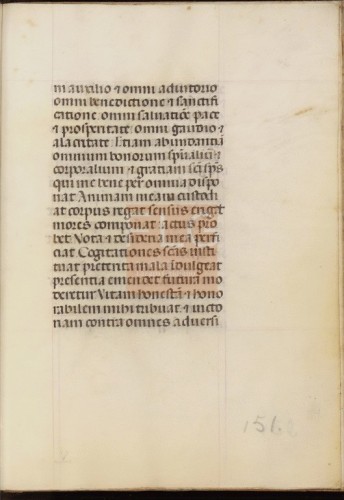 m auxilio ⁊ omni adiutorio
omni benedictione ⁊ sanctifi
catione omni saluatiōe pace
⁊ prosperitate omni gaudio ⁊
alacritate Etiam abundantiā
omnium bonorum spūaliū ⁊
corporalium ⁊ gratiam sc̄i sp̄s
qui me bene per omnia dispo
nat Animam meam custodi
at corpus regat sensus erigat
mores componat actus pro
bet Vota ⁊ desideria mea perfi
ciat Cogitationes sc̄as insti
tuat preterita mala īdulgeat
presentia emendet futura mo
deretur Vitam honestā ⁊ hono
rabilem mihi tribuat ⁊ victo
riam contra omnes aduersi
151.